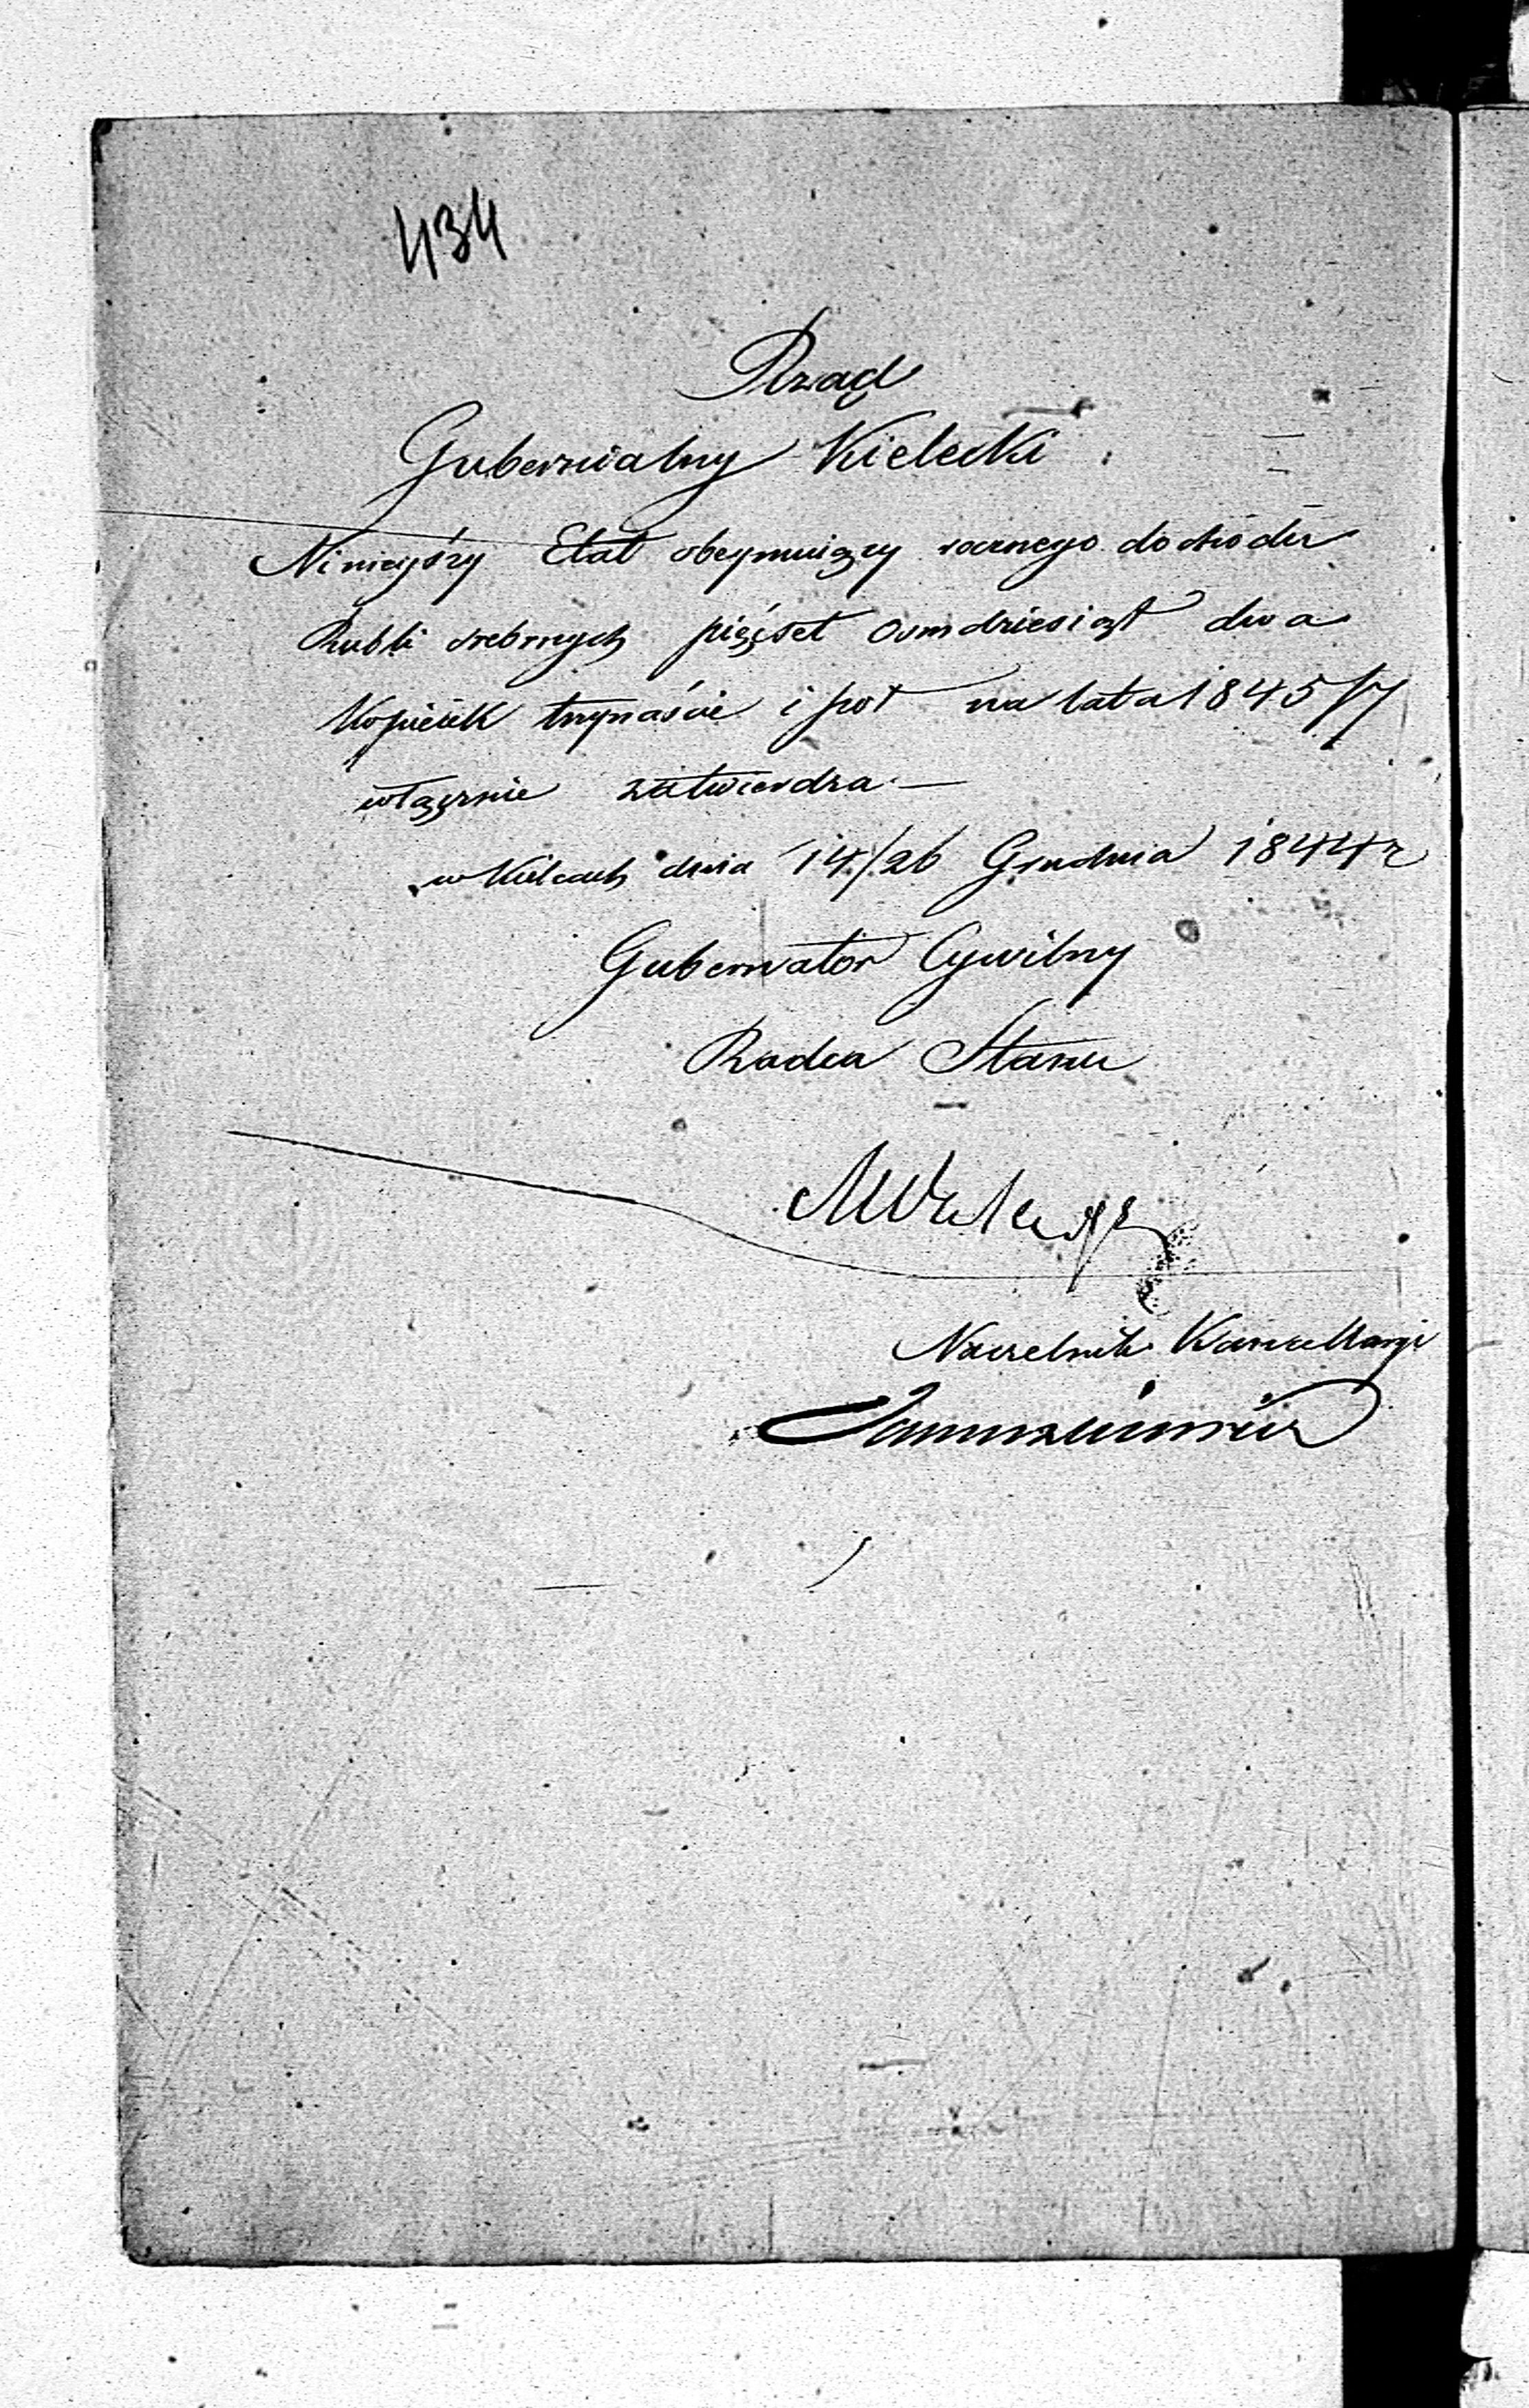 434
Rząd
Gubernialny Kielecki
Niniejszy Etat obejmuiący rocznego dochodu
Rubli srebrnych pięćset Osmdziesiąt dwa
Kopieiek trzynaście i pół na lata 1845/7
włącznie zatwierdza —
w Kielcach dnia 14/26 Grudnia 1844 r
Gubernator Cywilny
Radca Stanu
Naczelnik Kancellaryi